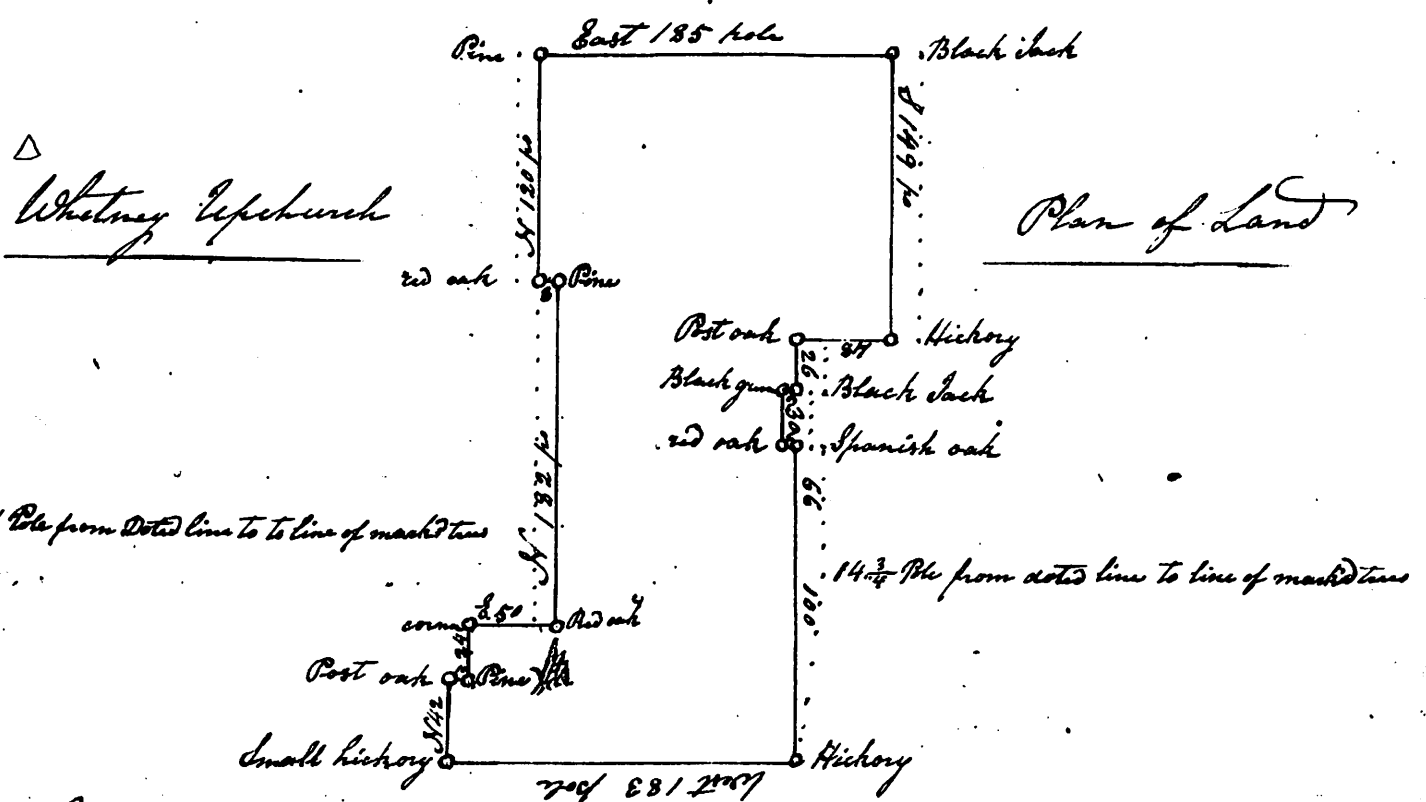 East 185 pole
Pine
Black Jack
N. 120 po
S 149 po
Whitney Upchurch
Plan of Land
red oak
Pine
8
Post oak
Hickory
26
Black gum
Black Jack
30
red oak
Spanish oak
66
N. 281
Pole from Doted line to to line of markd trees
14 3/4 Ple from doted line to line of markd trees
100
corner
E 50
Red oak
24
Post oak
Pine
N 42
Small hickory
Hickory
West 183 pole